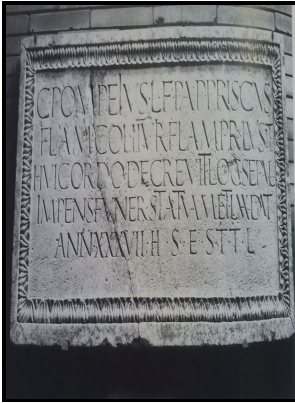 C·POMPEIVS·L·F·PAP·PRISCVS
FLAM·COL·IIVIR·FLAM·PR·LVSIT
HVIC·ORDO·DECREVIT·LOC·SEPVL
IMPENS·FVNER·STATVAM·ET·LAVDAT
ANN·XXXVII·H·S·E·S·T·T·L